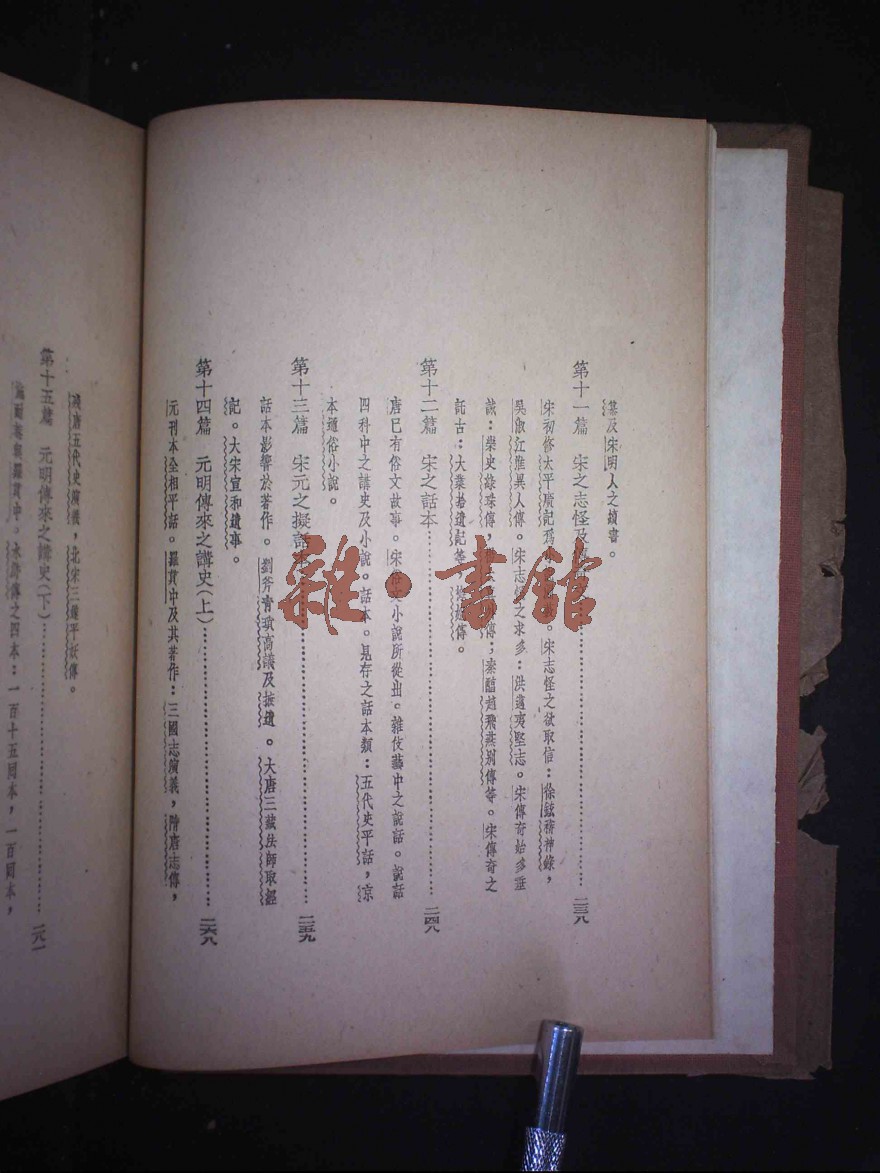 纂及宋明人之續書。
第十一篇 宋之志怪及……二三八
宋初修太平廣記爲小……。宋志怪之欲取信：徐鉉稽神錄，
吳淑江淮異人傳。宋志怪之求多：洪邁夷堅志。宋傳奇始多垂
誡：樂史綠珠傳，……傳；秦醇趙飛燕別傳等。宋傳奇之
託古：大業拾遺記等，梅妃傳。
第十二篇 宋之話本……二四八
唐已有俗文故事。宋俗文小說所從出。雜伎藝中之說話。說話
四科中之講史及小說。話本。見存之話本類：五代史平話，京
本通俗小說。
第十三篇 宋元之擬話本……二五九
話本影響於著作。劉斧青瑣高議及摭遺。大唐三藏法師取經
記。大宋宣和遺事。
第十四篇 元明傳來之講史（上）……二六八
元刊本全相平話。羅貫中及其著作：三國志演義，隋唐志傳，
殘唐五代史演義，北宋三遂平妖傳。
第十五篇 元明傳來之講史（下）……二八一
施耐菴與羅貫中。水滸傳之四本：一百十五回本，一百回本，
雜·書館